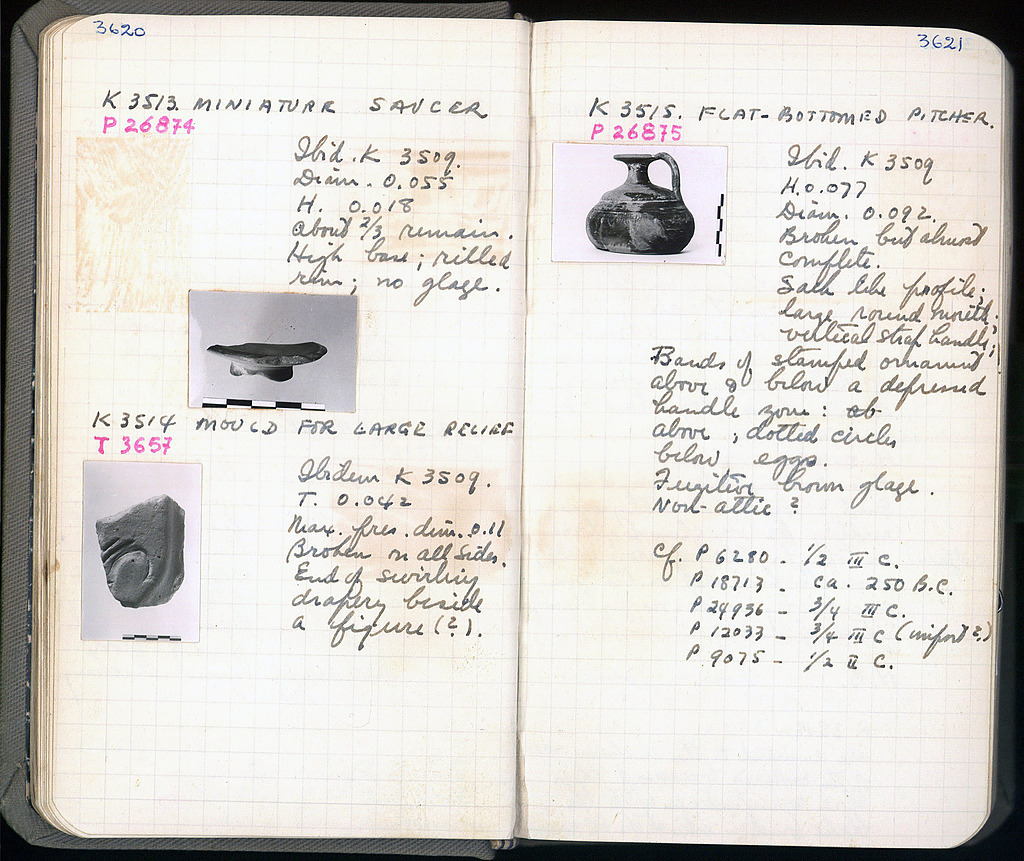 3620
K 3513. MINIATURE SAUCER
P 26874
Ibid. K 3509.
Diam. 0.055
H. 0.018
About 2/3 remain.
High base; rilled
rim; no glaze.
K 3514 MOULD FOR LARGE RELIEF
T 3657
Ibidem K 3509.
T. 0.042
Max. pres. dim. 0.11
Broken on all sides.
End of swirling
drapery beside
a figure (?).
3621
K 3515. FLAT-BOTTOMED PITCHER.
P 26875
Ibid. K 3509
H. 0.077
Diam. 0.092.
Broken but almost
complete.
Sack like profile;
large round mouth;
vertical strap handle;
Bands of stamped ornament
above & below a depressed
handle zone:
above, dotted circles
below, eggs.
Fugitive brown glaze.
Non-attic?
Cf. P 6280 - 1/2 III C.
P 18713 - ca. 250 B.C.
P 24936 - 3/4 III C.
P 12033 - 3/4 III C (import?)
P 9075 - 1/2 II C.